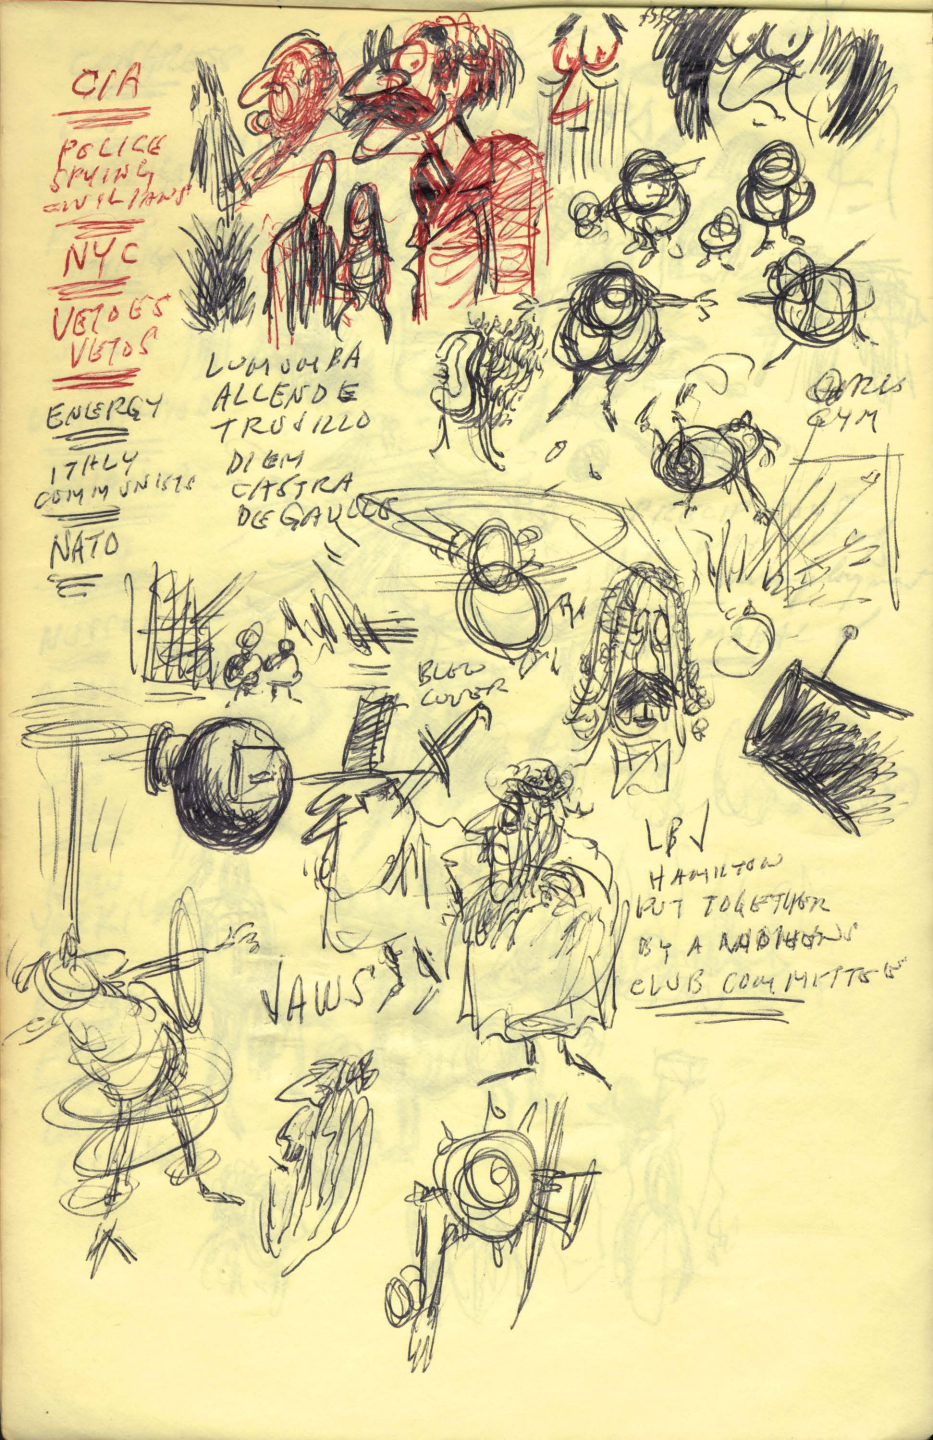 CIA
POLICE
SPYING
CIVILIANS
NYC
VETOES
VETOS
ENERGY
ITALY
COMMUNISTS
NATO
LUMUMBA
ALLENDE
TRUJILLO
DIEM
CASTRA
DE GAULLE
GYM
BLEW
COVER
JAWS
LBJ
HAMILTON
PUT TOGETHER
BY A
CLUB COMMITTEE